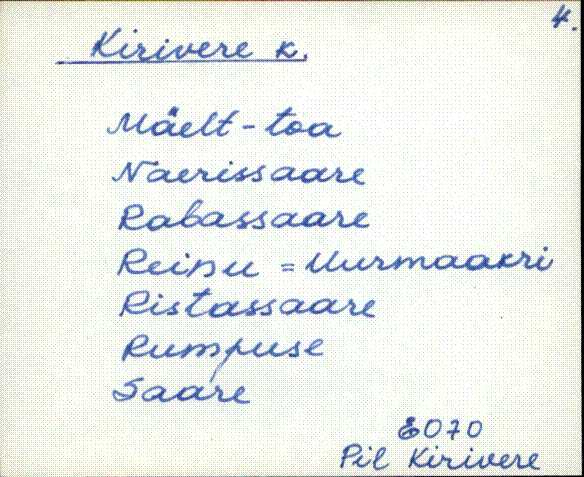 4.
Kirivere k.
Mäelt-toa
Naerissaare
Rabassaare
Reinu = Uurmaakri
Ristassaare
Rumpuse
Saare
EO70
Pil Kirivere